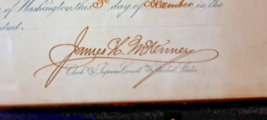 of Washington, this 3rd day of December, in the
James H. McKenney
Clerk of the Supreme Court of the United States